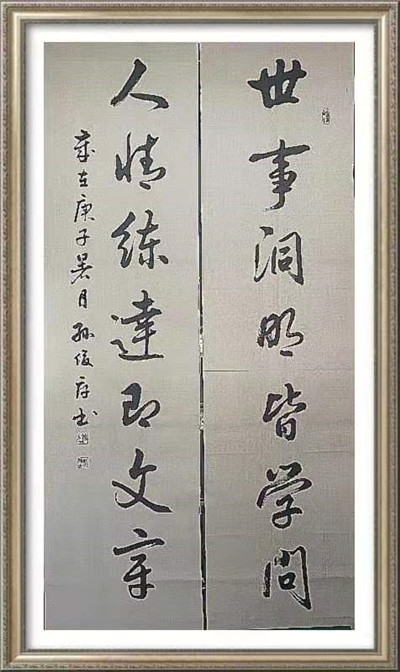 世事洞明皆学问
人情练达即文章
岁在庚子暑月孙俊存书